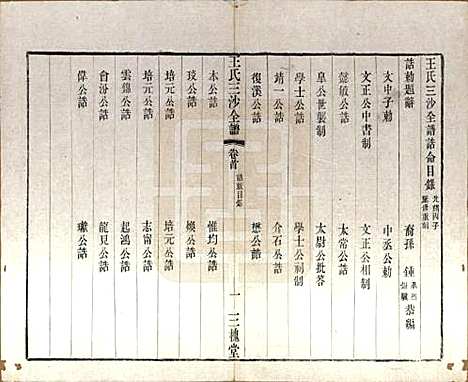 王氏三沙全譜誥命目錄 光緒丙子 重修重刻
誥勅題辭 裔孫 鍾 恭編
文中子勅 中丞公勅
文正公中書制 文正公相制
懿敏公誥 太常公誥
阜公世襲制 太尉公批答
學士公誥 學士公祠制
靖一公誥 介石公誥
復溪公誥 懋公誥
王氏三沙全譜 卷首 誥勅目錄 一 三槐堂
木公誥 惟均公誥
琰公誥 煥公誥
培元公誥 培元公誥
培元公誥 志甯公誥
雲錦公誥 起鴻公誥
會汾公誥 龍見公誥
偉公誥 瓛公誥